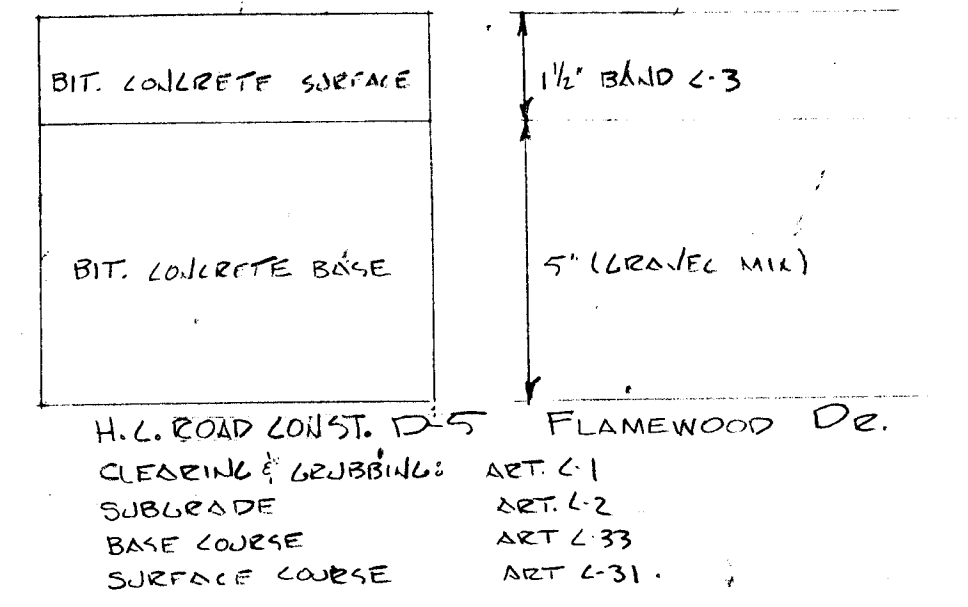 BIT. CONCRETE SURFACE
1½" BAND C-3
BIT. CONCRETE BASE
5" (GRAVEL MIX)
H.C. ROAD CONST. D-5 FLAMEWOOD DR.
CLEARING & GRUBBING: ART. C-1
SUBGRADE ART. C-2
BASE COURSE ART C-33
SURFACE COURSE ART C-31.